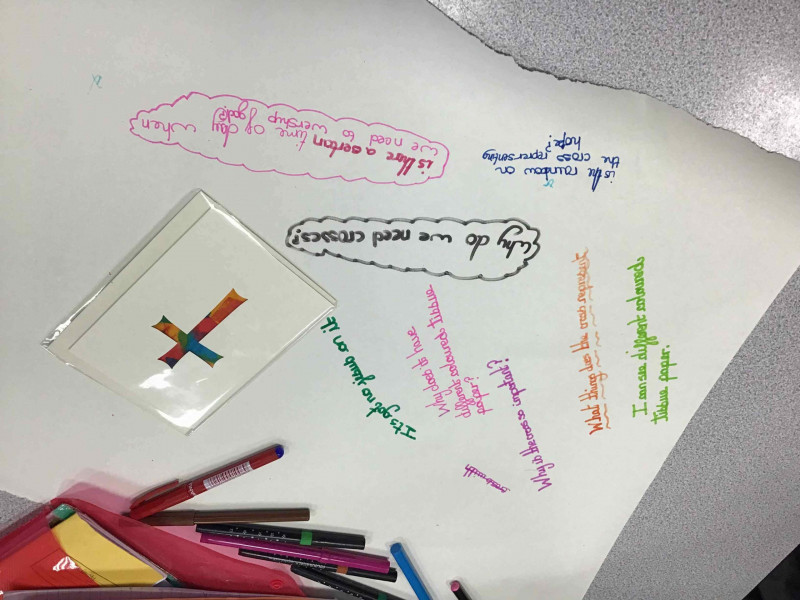 is there a certan
time of day when
we need to wership
god?
is the rainbow on
the cross reprersenting
hope?
Why do we need crosses?
It's got no jesus on it
Why does it have
different coloured tissue
paper?
Why is the cross important?
What things does the cross represent
I can see different coloured
tissue paper.